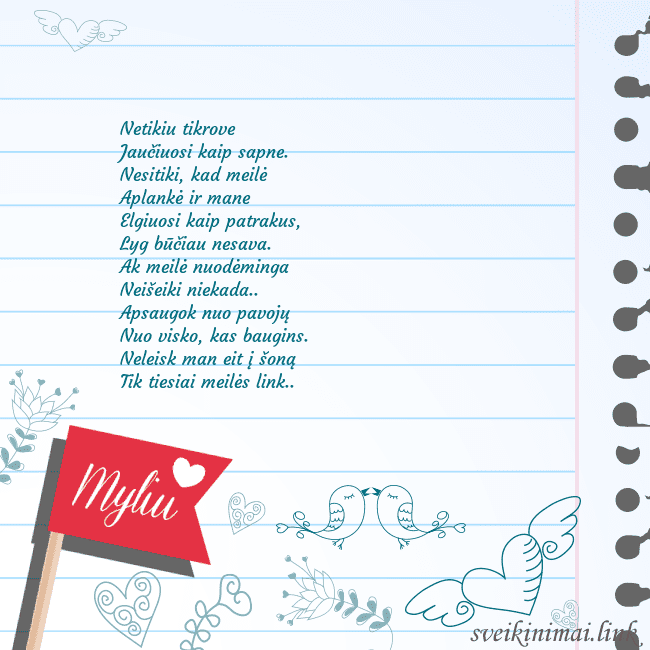 Netikiu tikrove
Jaučiuosi kaip sapne.
Nesitiki, kad meilė
Aplankė ir mane
Elgiuosi kaip patrakus,
Lyg būčiau nesava.
Ak meilė nuodėminga
Neišeiki niekada..
Apsaugok nuo pavojų
Nuo visko, kas baugins.
Neleisk man eit į šoną
Tik tiesiai meilės link..
Myliu
sveikinimai.link